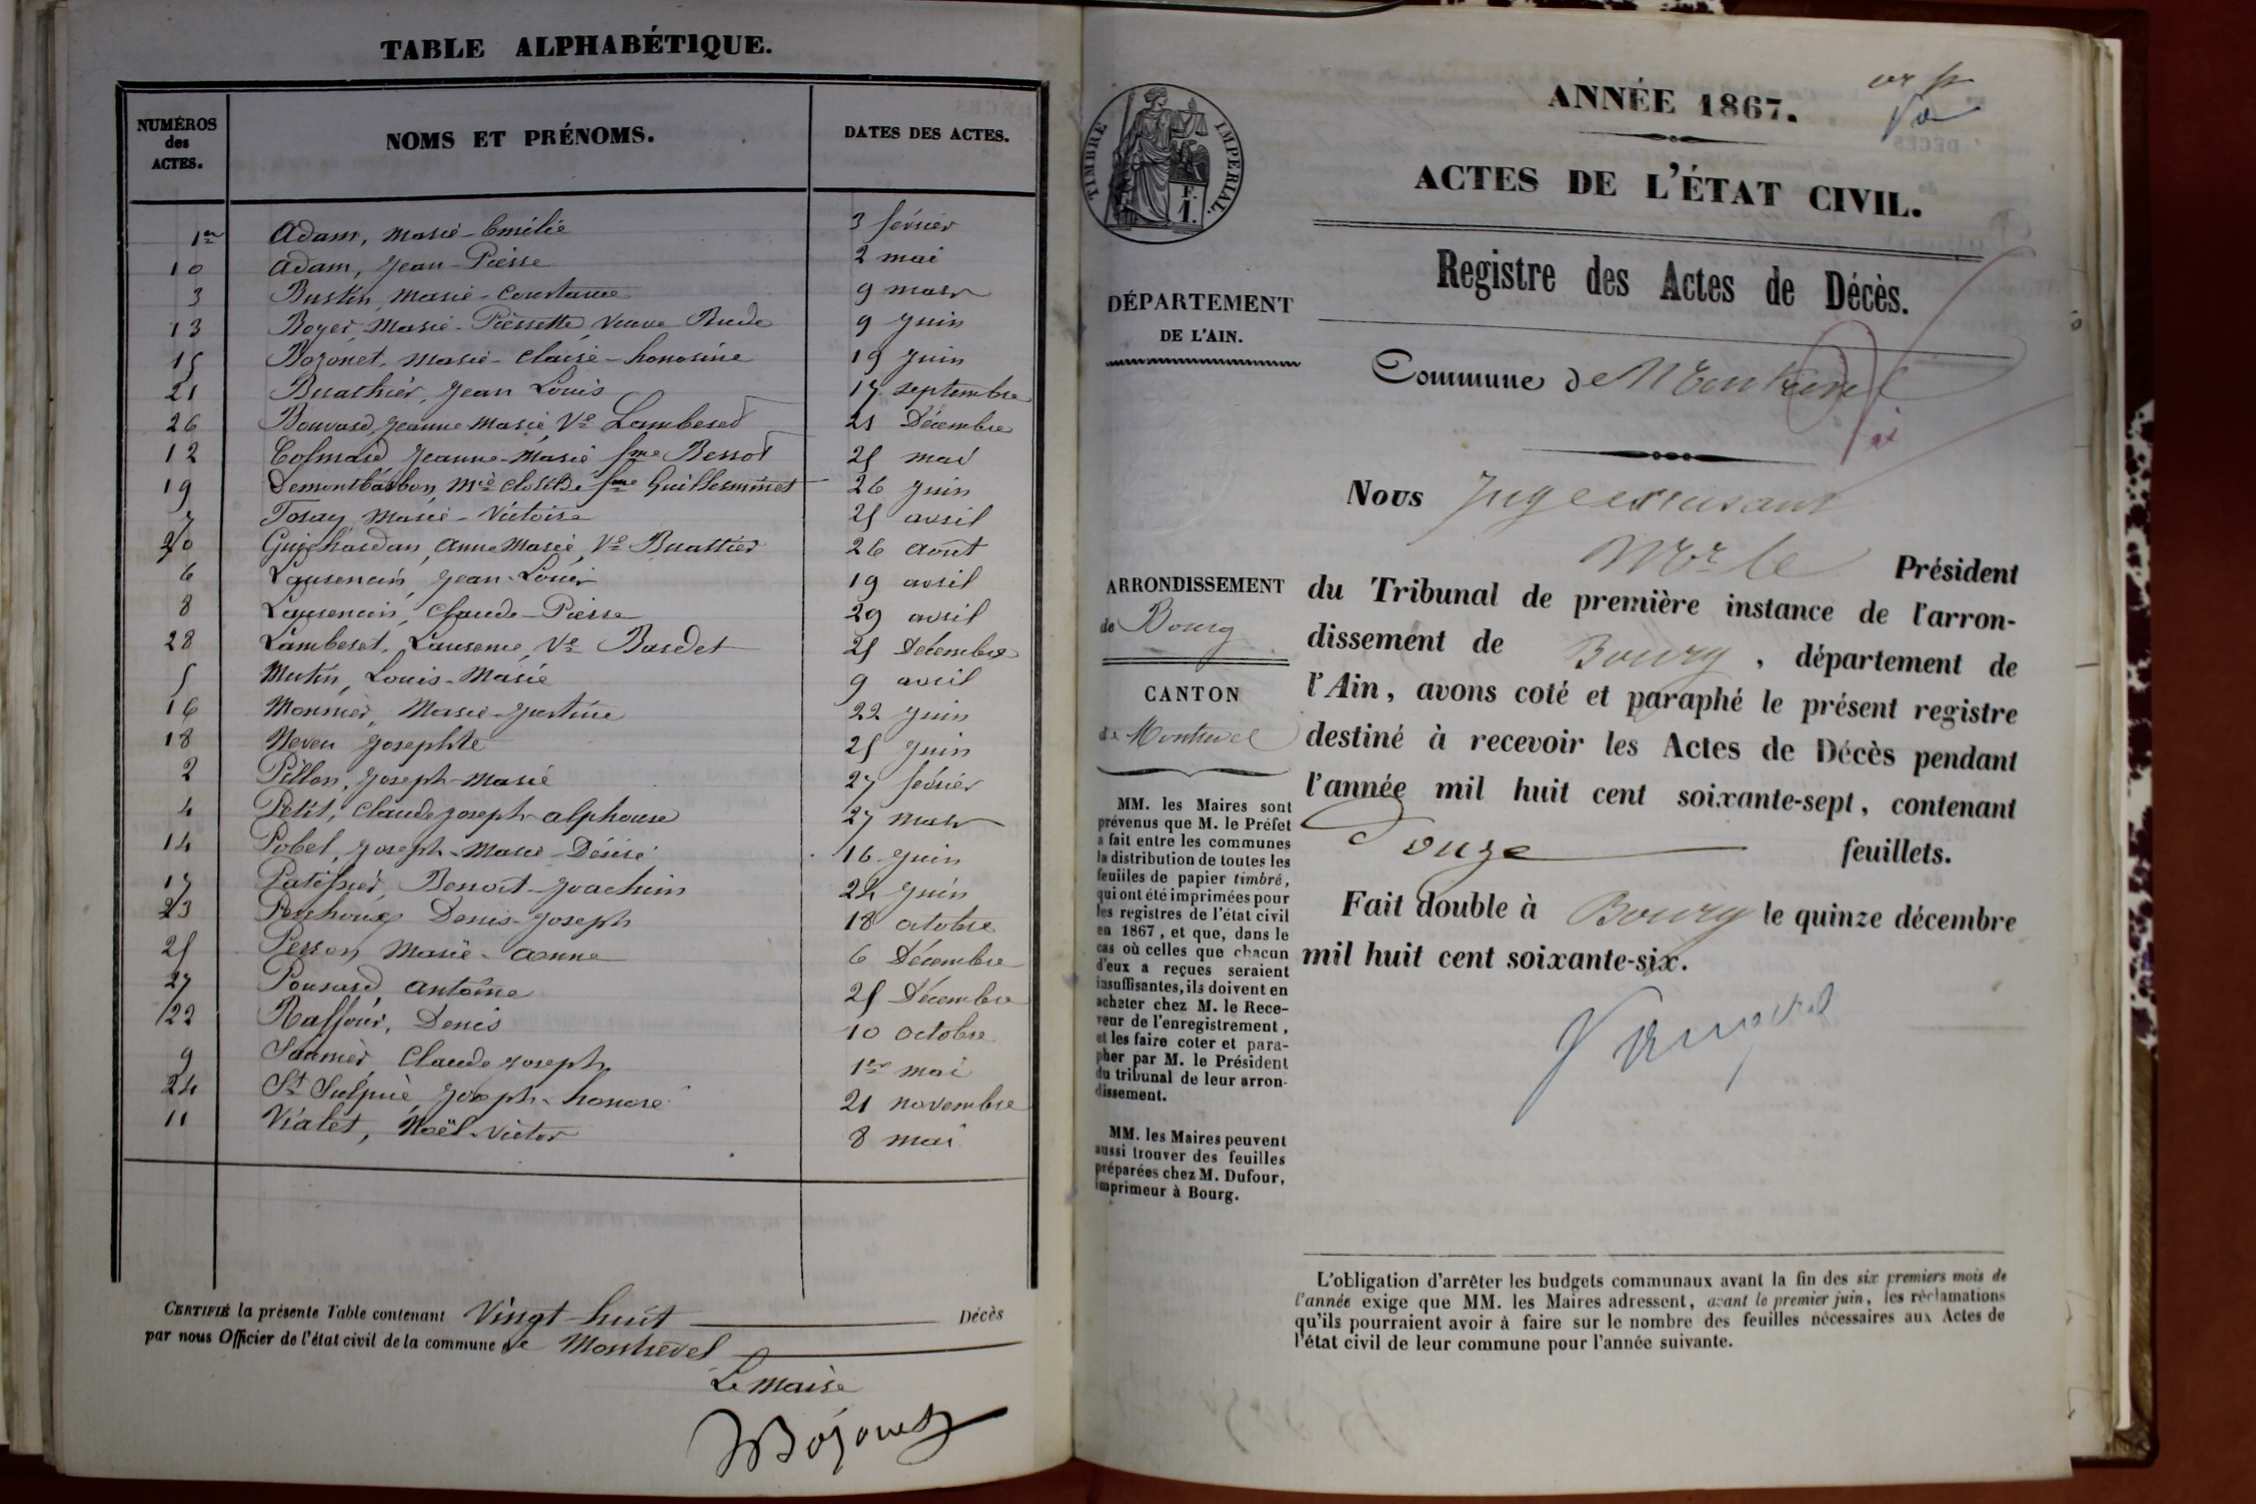 TABLE ALPHABÉTIQUE.
NUMÉROS des ACTES. NOMS ET PRÉNOMS. DATES DES ACTES.
1er Adam, Marie-Emélie 3 février
10 Adam, Jean-Pierre 2 mai
3 Buston, Marie-Constance 9 mars
13 Boyer, Marie-Pierrette Veuve Bude 9 Juin
15 Bozonet, Marie-Claire-honorine 19 Juin
21 Buathier, Jean Louis 17 septembre
26 Bouvard, Jeanne Marie Ve Lamberet 21 Décembre
12 Colmard Jeanne-Marie fme Berrod 25 mai
19 Demontbarbon, Mie Clotilde fme Guillerminet 26 Juin
7 Foray Marie-Victoire 25 avril
20 Guichardan, Anne Marie, Ve Buattier 26 août
6 Laurencin, Jean-Louis 19 avril
8 Laurencin, Claude-Pierre 29 avril
28 Lamberet, Laurence, Ve Bardet 25 Décembre
5 Mutin, Louis-Marie 9 avril
16 Monnier, Marie-Justine 22 Juin
18 Neveu Josephte 25 Juin
2 Pillon, Joseph-Marie 27 février
4 Petit, Claude Joseph-alphonse 27 mars
14 Pobel, Joseph-Marie-Désiré 16 Juin
17 Patissier, Benoît-Joachim 24 Juin
23 Perchoux Denis-Joseph 18 octobre
25 Perron Marie-anne 6 Décembre
27 Ponsard, antoine 25 Décembre
22 Raffour, Denis 10 octobre
9 Saunier Claude Joseph 1er mai
24 St Sulpice Joseph-honoré 21 novembre
11 Vialet, Noël-Victor 8 mai
CERTIFIÉ la présente Table contenant Vingt-huit Décès
par nous Officier de l'état civil de la commune de Montrevel
Le Maire
ANNÉE 1867.
TIMBRE IMPÉRIAL.
F.
1.
ACTES DE L'ÉTAT CIVIL.
Registre des Actes de Décès.
DÉPARTEMENT
DE L'AIN.
Commune de Montrevel
Nous Juge
Mr le Président
du Tribunal de première instance de l'arron-
dissement de Bourg, département de
l'Ain, avons coté et paraphé le présent registre
destiné à recevoir les Actes de Décès pendant
l'année mil huit cent soixante-sept, contenant
Douze feuillets.
Fait double à Bourg le quinze décembre
mil huit cent soixante-six.
ARRONDISSEMENT
de Bourg
CANTON
de Montrevel
MM. les Maires sont
prévenus que M. le Préfet
a fait entre les communes
la distribution de toutes les
feuilles de papier timbré,
qui ont été imprimées pour
les registres de l'état civil
en 1867, et que, dans le
cas où celles que chacun
d'eux a reçues seraient
insuffisantes, ils doivent en
acheter chez M. le Rece-
veur de l'enregistrement,
et les faire coter et para-
pher par M. le Président
du tribunal de leur arron-
dissement.
MM. les Maires peuvent
aussi trouver des feuilles
préparées chez M. Dufour,
imprimeur à Bourg.
L'obligation d'arrêter les budgets communaux avant la fin des six premiers mois de
l'année exige que MM. les Maires adressent, avant le premier juin, les réclamations
qu'ils pourraient avoir à faire sur le nombre des feuilles nécessaires aux Actes de
l'état civil de leur commune pour l'année suivante.